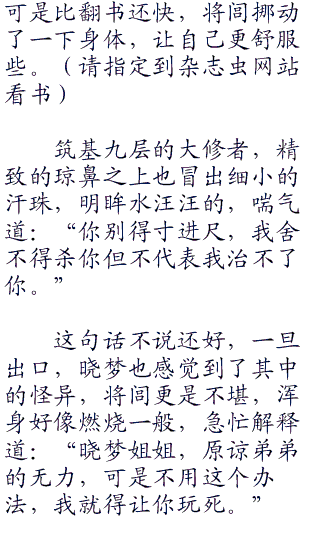 可是比翻书还快，将闾挪动
了一下身体，让自己更舒服
些。（请指定到杂志虫网站
看书）
　　筑基九层的大修者，精
致的琼鼻之上也冒出细小的
汗珠，明眸水汪汪的，喘气
道：“你别得寸进尺，我舍
不得杀你但不代表我治不了
你。”
　　这句话不说还好，一旦
出口，晓梦也感觉到了其中
的怪异，将闾更是不堪，浑
身好像燃烧一般，急忙解释
道：“晓梦姐姐，原谅弟弟
的无力，可是不用这个办
法，我就得让你玩死。”